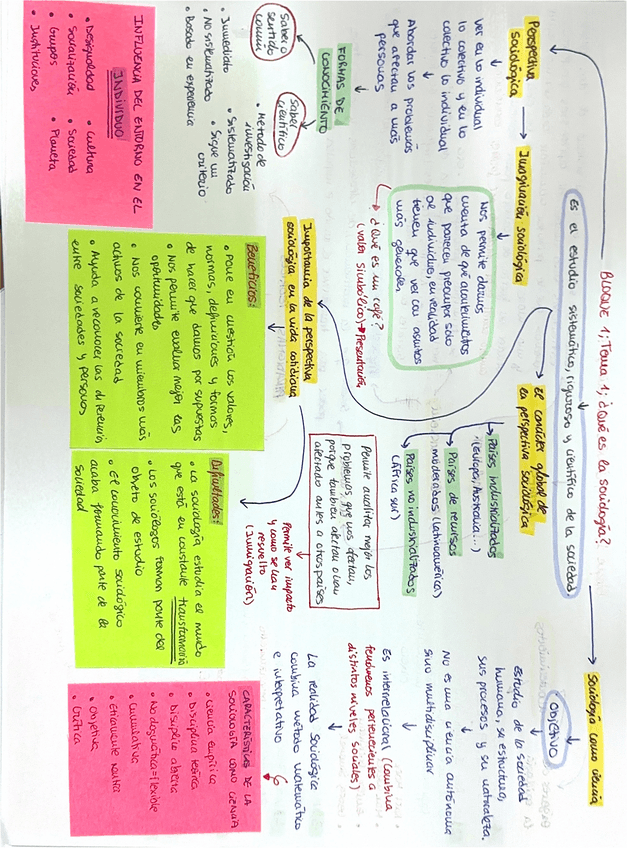 BLOQUE 1; Tema 1; ¿Qué es la sociología?
Es el estudio sistemático, riguroso y científico de la sociedad.
Perspectiva
sociológica
ver en lo individual
lo colectivo y en lo
colectivo lo individual
Abordar los problemas
que afectan a más
personas
Imaginación sociológica
Nos permite darnos
cuenta de que acontecimientos
que parecen preocupar solo
al individuo, en realidad
tienen que ver con asuntos
más generales
¿Qué es un café?
(valor simbólico) → Presentación
El carácter global de
la perspectiva sociológica
Países industrializados
(Europa, Australia...)
Países de recursos
moderados (Latinoamérica)
Países no industrializados
(África sur)
Permite analizar mejor los
problemas que nos afectan,
porque también afectan o han
afectado antes a otros países
Permite ver impacto
y como se han
resuelto
(Inmigración)
Sociología como ciencia
Objetivo
Estudio de la sociedad
humana, su estructura,
sus procesos y su naturaleza.
No es una ciencia autónoma
sino multidisciplinar
Es interrelacional (combina
fenómenos pertenecientes a
distintos niveles sociales)
La realidad sociológica
combina método matemático
e interpretativo
FORMAS DE
CONOCIMIENTO
Saber o
sentido
común
• Inmediato
• No sistematizado
• Basado en experiencia
Saber
científico
• Método de
investigación
• Sistematizado
• Sigue un
criterio
Importancia de la perspectiva
sociológica en la vida cotidiana
Beneficios:
• Pone en cuestión los valores,
normas, definiciones y formas
de hacer que damos por supuestas
• Nos permite evaluar mejor las
oportunidades
• Nos convierte en miembros más
activos de la sociedad
• Ayuda a reconocer las diferencias
entre sociedades y personas
Dificultades:
• La sociología estudia el mundo
que está en constante transformación
• Los sociólogos forman parte del
objeto de estudio
• El conocimiento sociológico
acaba formando parte de la
sociedad
INFLUENCIA DEL ENTORNO EN EL
INDIVIDUO
• Desigualdad
• Socialización
• Grupos
• Instituciones
• Cultura
• Sociedad
• Planeta
CARACTERÍSTICAS DE LA
SOCIOLOGÍA COMO CIENCIA
6
• Ciencia empírica
• Disciplina teórica
• Disciplina abierta
• No dogmática = flexible
• Cumulativa
• Éticamente neutra
• Objetiva
• Crítica